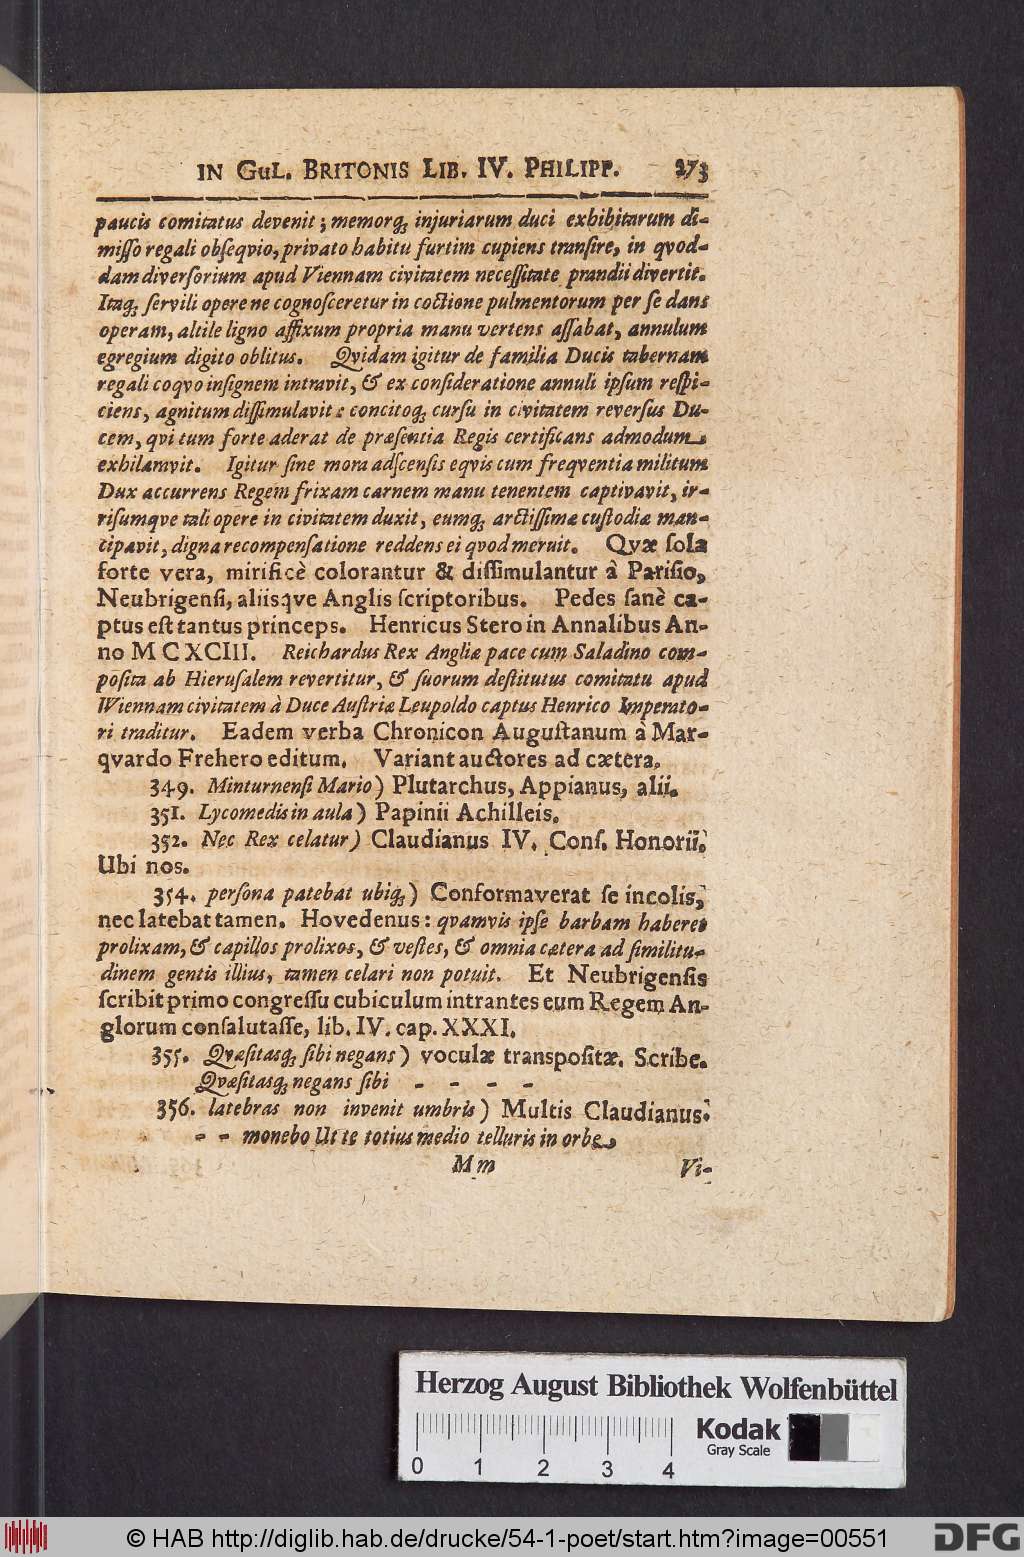 IN GuL. BRITONIS LIB. IV. PHILIPP. 273
paucis comitatus devenit; memorq; injuriarum duci exhibitarum di-
misso regali obseqvio, privato habitu furtim cupiens transire, in qvod-
dam diversorium apud Viennam civitatem necessitate prandii divertit.
Itaq; servili opere ne cognosceretur in coctione pulmentorum per se dans
operam, altile ligno affixum propria manu vertens assabat, annulum
egregium digito oblitus. Qvidam igitur de familia Ducis tabernam
regali coqvo insignem intravit, & ex consideratione annuli ipsum respi-
ciens, agnitum dissimulavit: concitoq; cursu in civitatem reversus Du-
cem, qvi tum forte aderat de præsentia Regis certificans admodum
exhilaravit. Igitur sine mora adscensis eqvis cum freqventia militum
Dux accurrens Regem frixam carnem manu tenentem captivavit, ir-
risumqve tali opere in civitatem duxit, eumq; arctissimæ custodiæ man-
cipavit, digna recompensatione reddens ei qvod meruit. Qvæ sola
forte vera, mirificè colorantur & dissimulantur à Parisio,
Neubrigensi, aliisqve Anglis scriptoribus. Pedes sanè ca-
ptus est tantus princeps. Henricus Stero in Annalibus An-
no MCXCIII. Reichardus Rex Angliæ pace cum Saladino com-
posita ab Hierusalem revertitur, & suorum destitutus comitatu apud
Wiennam civitatem à Duce Austriæ Leupoldo captus Henrico Imperato-
ri traditur. Eadem verba Chronicon Augustanum à Mar-
qvardo Frehero editum. Variant auctores ad cætera.
349. Minturnensi Mario) Plutarchus, Appianus, alii.
351. Lycomedis in aula) Papinii Achilleis.
352. Nec Rex celatur) Claudianus IV. Cons. Honorii.
Ubi nos.
354. persona patebat ubiq;) Conformaverat se incolis,
nec latebat tamen. Hovedenus: qvamvis ipse barbam haberet
prolixam, & capillos prolixos, & vestes, & omnia cætera ad similitu-
dinem gentis illius, tamen celari non potuit. Et Neubrigensis
scribit primo congressu cubiculum intrantes eum Regem An-
glorum consalutasse, lib. IV. cap. XXXI.
355. Qvæsitasq; sibi negans) voculæ transpositæ. Scribe.
Qvæsitasq; negans sibi - - - -
356. latebras non invenit umbris) Multis Claudianus:
- - monebo Ut te totius medio telluris in orbe
Mm Vi-
Herzog August Bibliothek Wolfenbüttel
Kodak
Gray Scale
0 1 2 3 4
© HAB http://diglib.hab.de/drucke/54-1-poet/start.htm?image=00551
DFG